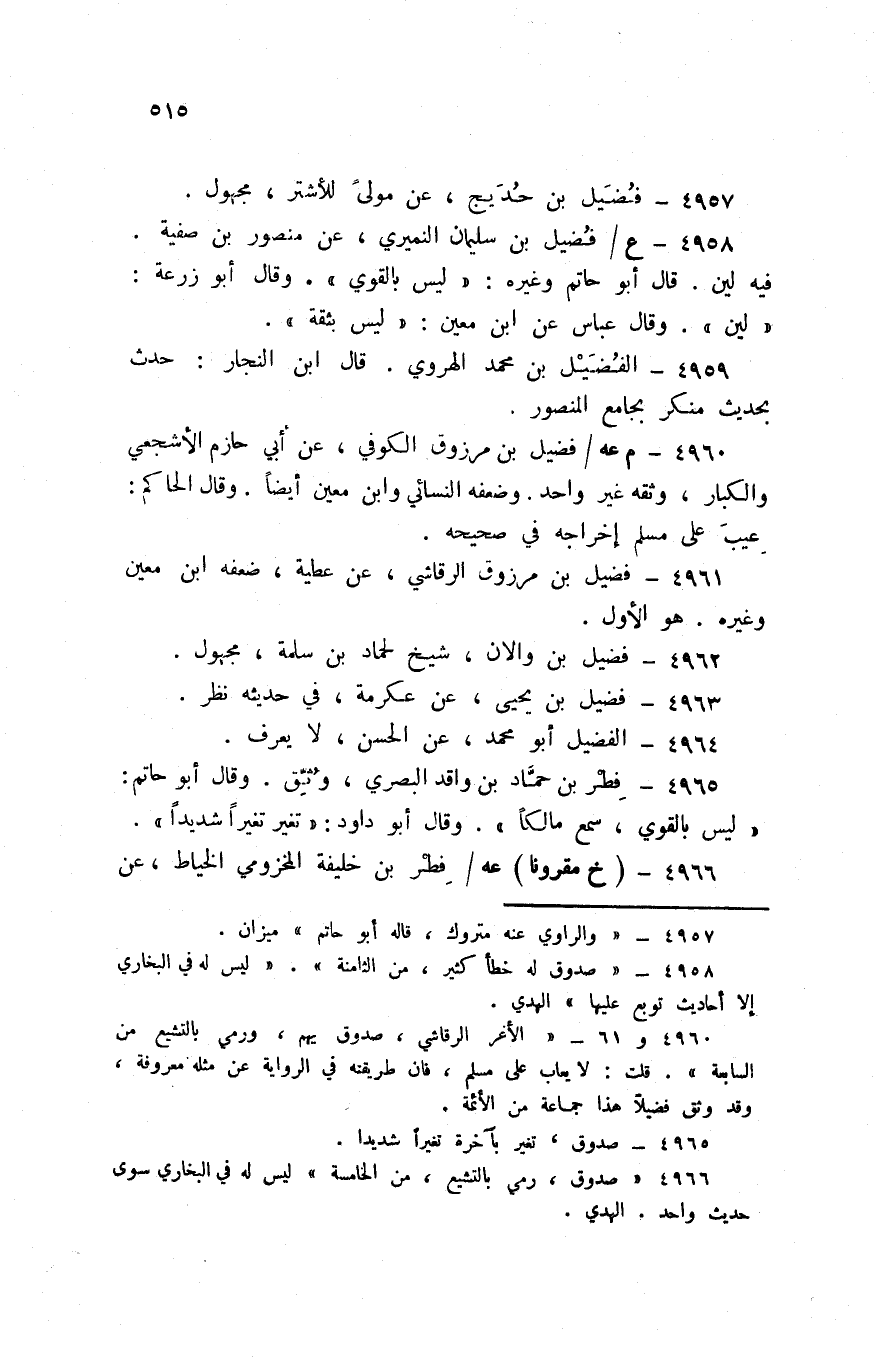 ٥١٥
٤٩٥٧ – فُضَيل بن حُدَيج ، عن مولىً للأشتر ، مجهول .
٤٩٥٨ – ع / فُضيل بن سليمان النميري ، عن منصور بن صفية .
فيه لين . قال أبو حاتم وغيره : « ليس بالقوي » . وقال أبو زرعة :
« لين » . وقال عباس عن ابن معين : « ليس بثقة » .
٤٩٥٩ – الفُضَيْل بن محمد الهروي . قال ابن النجار : حدث
بحديث منكر بجامع المنصور .
٤٩٦٠ – م عه / فضيل بن مرزوق الكوفي ، عن أبي حازم الأشجعي
والكبار ، وثقه غير واحد . وضعفه النسائي وابن معين أيضاً . وقال الحاكم :
عِيبَ على مسلم إخراجه في صحيحه .
٤٩٦١ – فضيل بن مرزوق الرقاشي ، عن عطية ، ضعفه ابن معين
وغيره . هو الأول .
٤٩٦٢ – فضيل بن والان ، شيخ لحماد بن سلمة ، مجهول .
٤٩٦٣ – فضيل بن يحيى ، عن عكرمة ، في حديثه نظر .
٤٩٦٤ – الفضيل أبو محمد ، عن الحسن ، لا يعرف .
٤٩٦٥ – فِطْر بن حمَّاد بن واقد البصري ، وُثِّق . وقال أبو حاتم :
« ليس بالقوي ، سمع مالكاً » . وقال أبو داود : « تغير تغيراً شديداً » .
٤٩٦٦ – ( خ مقرونا ) عه / فِطْر بن خليفة المخزومي الخياط ، عن
٤٩٥٧ – « والراوي عنه متروك ، قاله أبو حاتم » ميزان .
٤٩٥٨ – « صدوق له خطأ كثير ، من الثامنة » . « ليس له في البخاري
إلا أحاديث توبع عليها » الهدي .
٤٩٦٠ و ٦١ – « الأغر الرقاشي ، صدوق يهم ، ورمي بالتشيع من
السابعة » . قلت : لا يعاب على مسلم ، فان طريقته في الرواية عن مثله معروفة ،
وقد وثق فضيلاً هذا جماعة من الأئمة .
٤٩٦٥ – صدوق ، تغير بآخرة تغيراً شديدا .
٤٩٦٦ « صدوق ، رمي بالتشيع ، من الخامسة » ليس له في البخاري سوى
حديث واحد . الهدي .